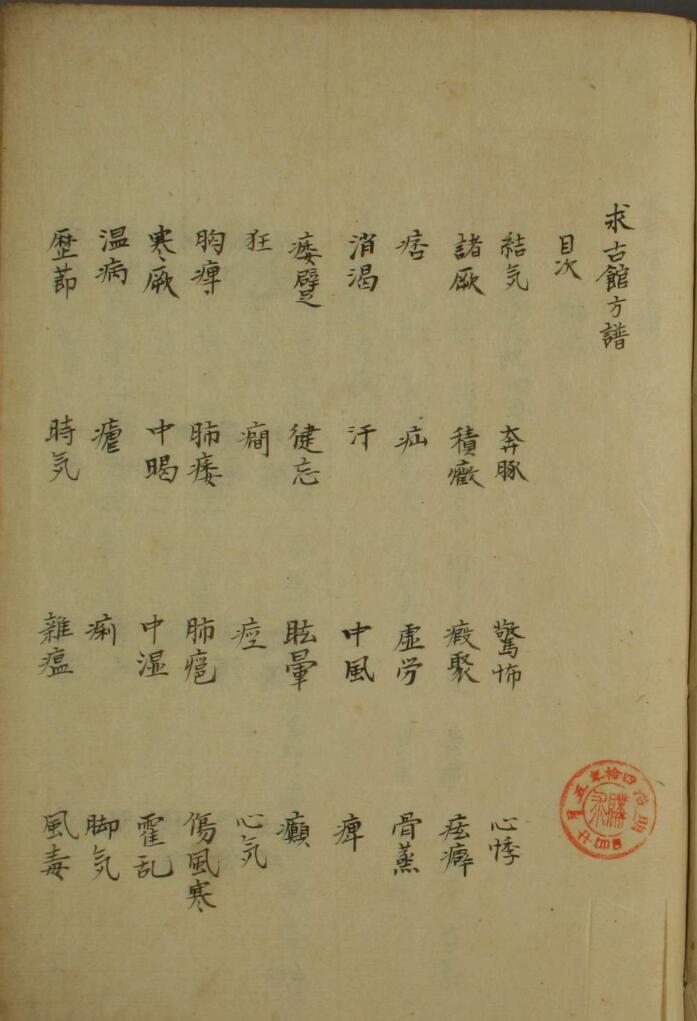 求古館方譜
目次
結気 奔豚 驚怖 心悸
諸厥 積癥 瘕聚 痃癖
痞 疝 虚労 骨蒸
消渇 汗 中風 痺
痿躄 健忘 眩暈 癲
狂 癇 痙 心気
胸痺 肺痿 肺癰 傷風寒
寒厥 中暍 中湿 霍乱
温病 瘧 痢 脚気
歴節 時気 雑瘟 風毒
明治四拾年五月廿四日